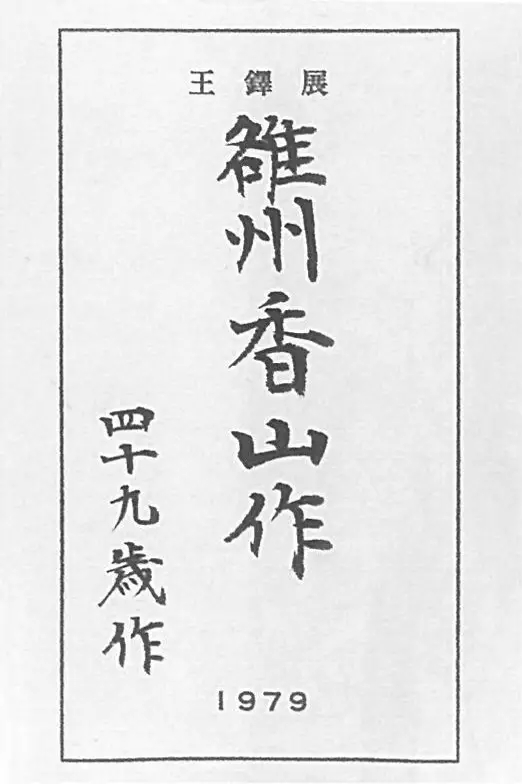 王鐸展
雒州香山作
四十九歳作
1979